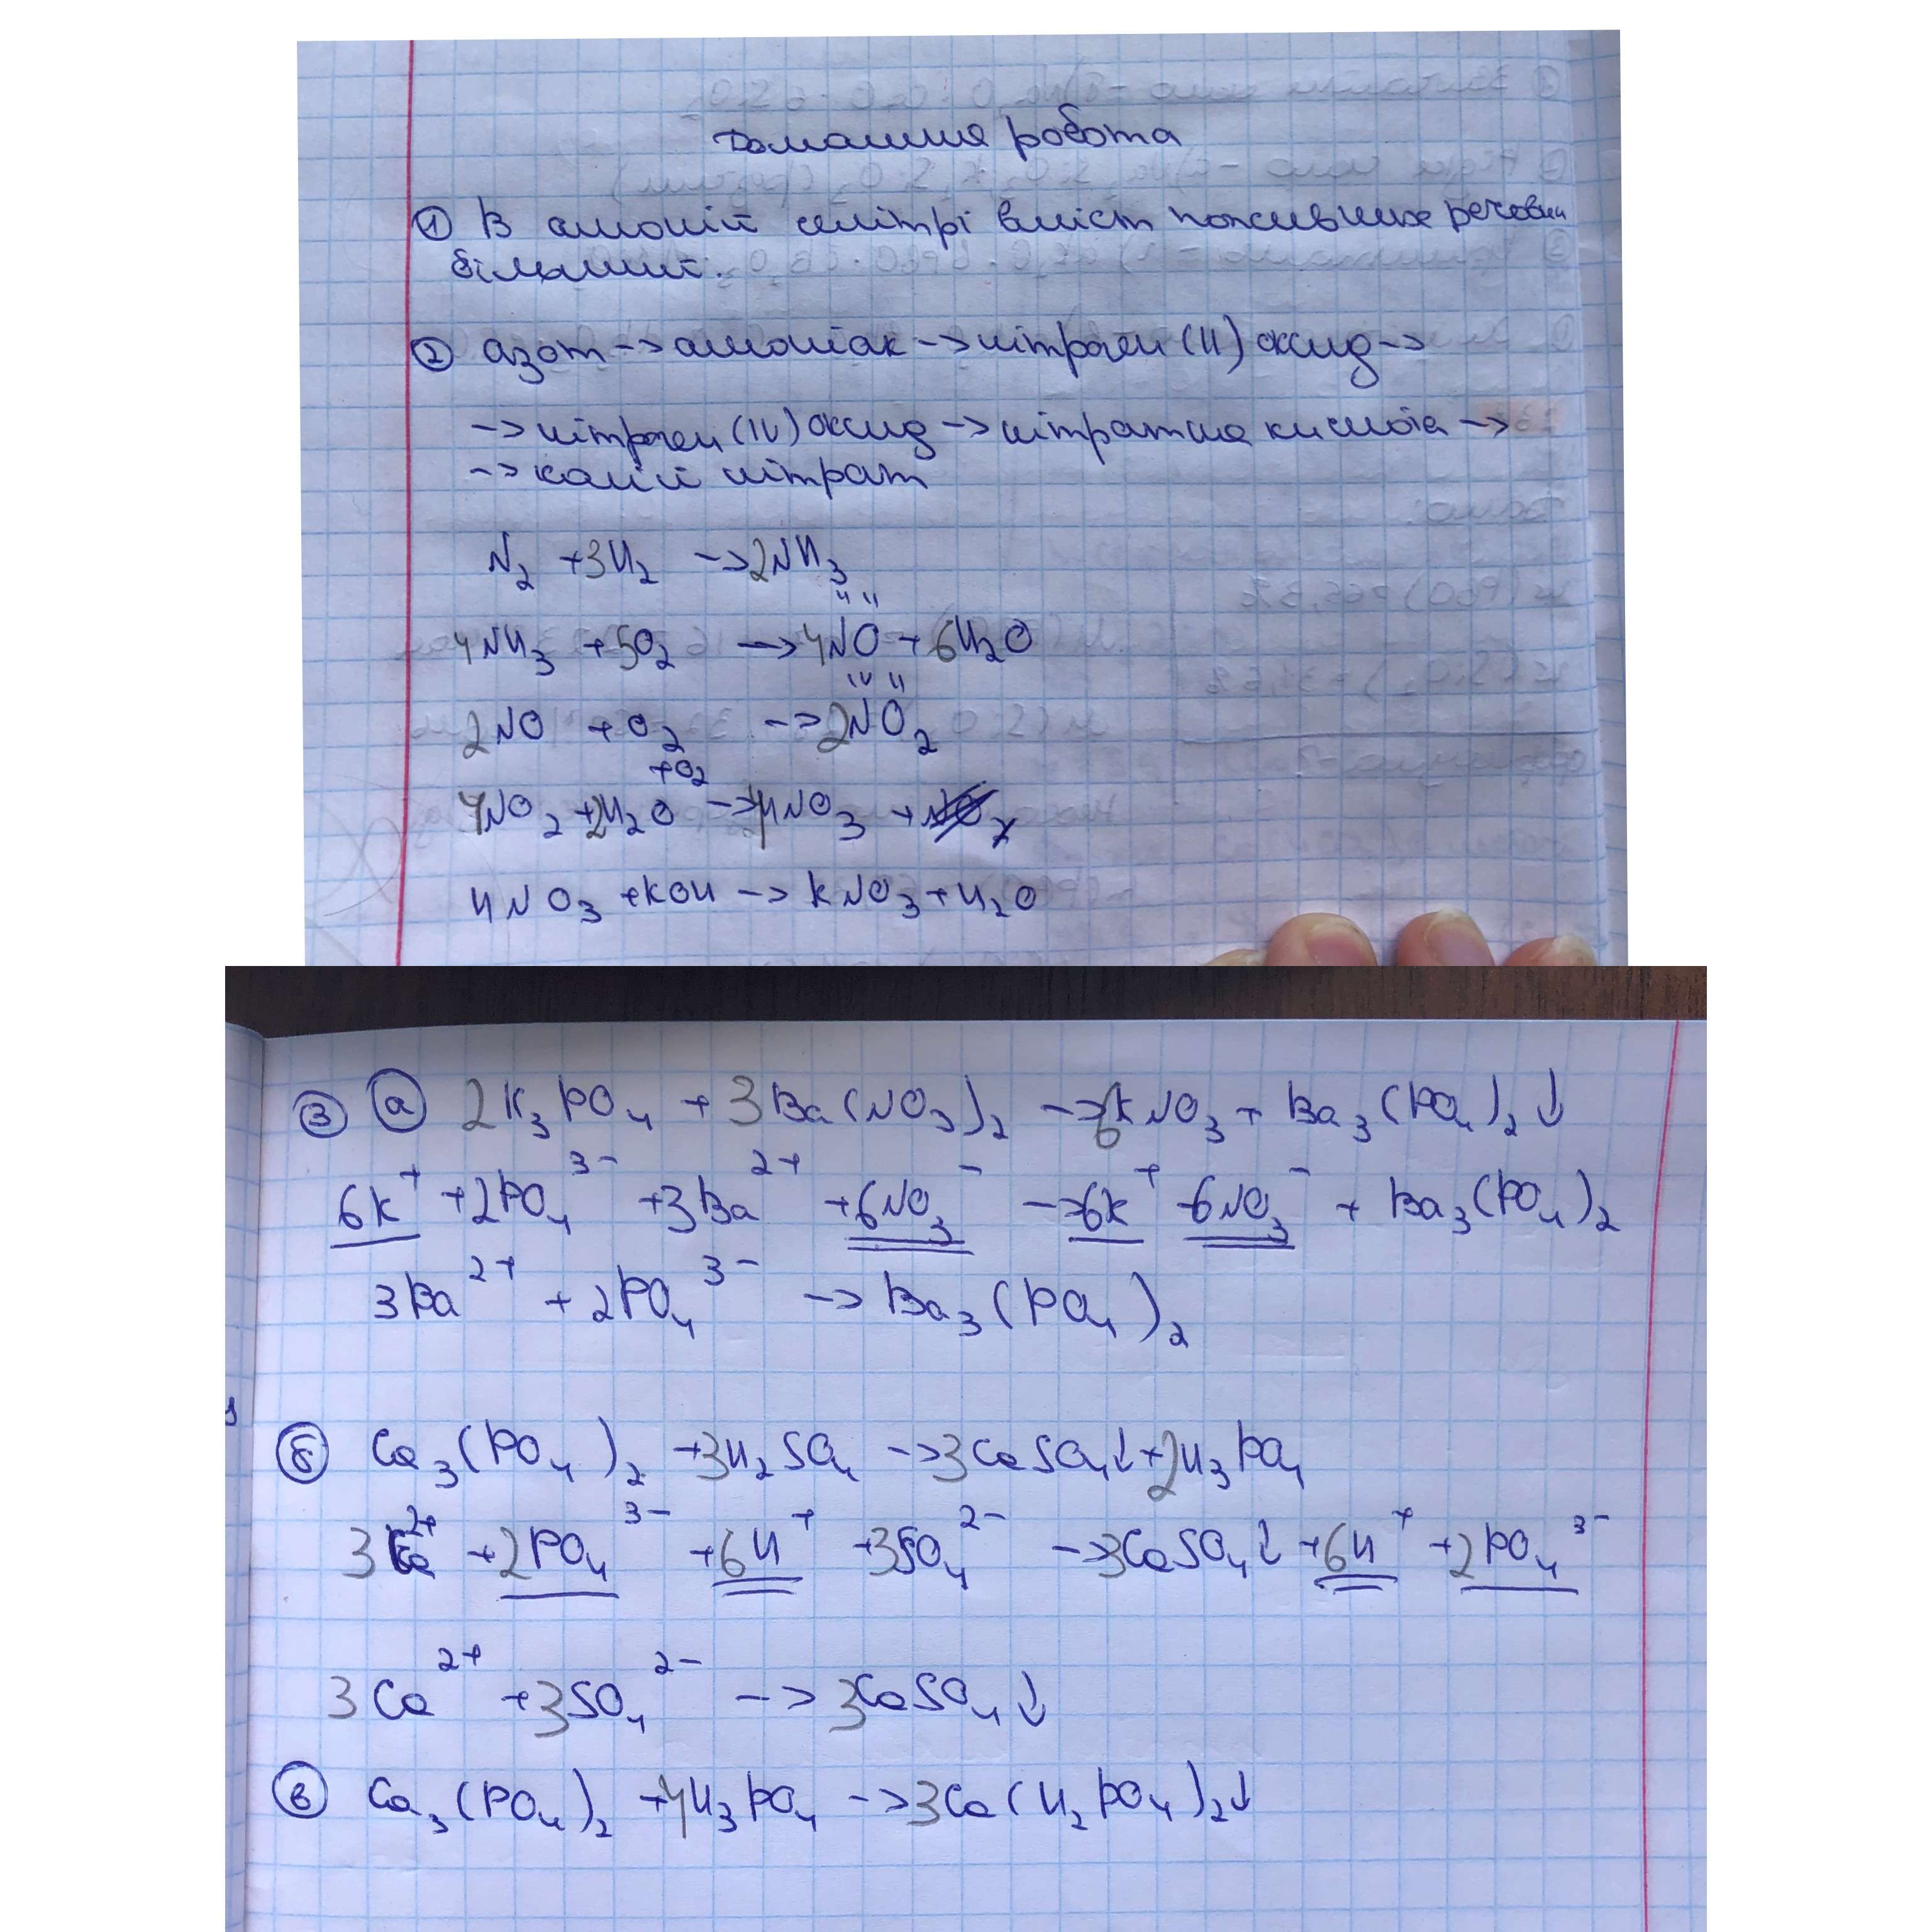 Домашня робота
① В амоній селітрі вміст поживних речовин
більший.
② азот -> амоніак -> нітроген (II) оксид ->
-> нітроген (IV) оксид -> нітратна кислота ->
-> калій нітрат
N₂ + 3H₂ -> 2NH₃
II II
4NH₃ + 5O₂ -> 4NO + 6H₂O
IV II
2NO + O₂ -> 2NO₂
+O₂
4NO₂ + 2H₂O -> 4HNO₃ +
HNO₃ + KOH -> KNO₃ + H₂O
③ ⓐ 2K₃PO₄ + 3Ba(NO₃)₂ -> 6KNO₃ + Ba₃(PO₄)₂↓
6K⁺ + 2PO₄³⁻ + 3Ba²⁺ + 6NO₃⁻ -> 6K⁺ - 6NO₃⁻ + Ba₃(PO₄)₂
3Ba²⁺ + 2PO₄³⁻ -> Ba₃(PO₄)₂
ⓑ Ca₃(PO₄)₂ + 3H₂SO₄ -> 3CaSO₄↓ + 2H₃PO₄
3Ca²⁺ + 2PO₄³⁻ + 6H⁺ + 3SO₄²⁻ -> 3CaSO₄↓ + 6H⁺ + 2PO₄³⁻
3Ca²⁺ + 3SO₄²⁻ -> 3CaSO₄↓
(в) Ca₃(PO₄)₂ + 4H₃PO₄ -> 3Ca(H₂PO₄)₂↓